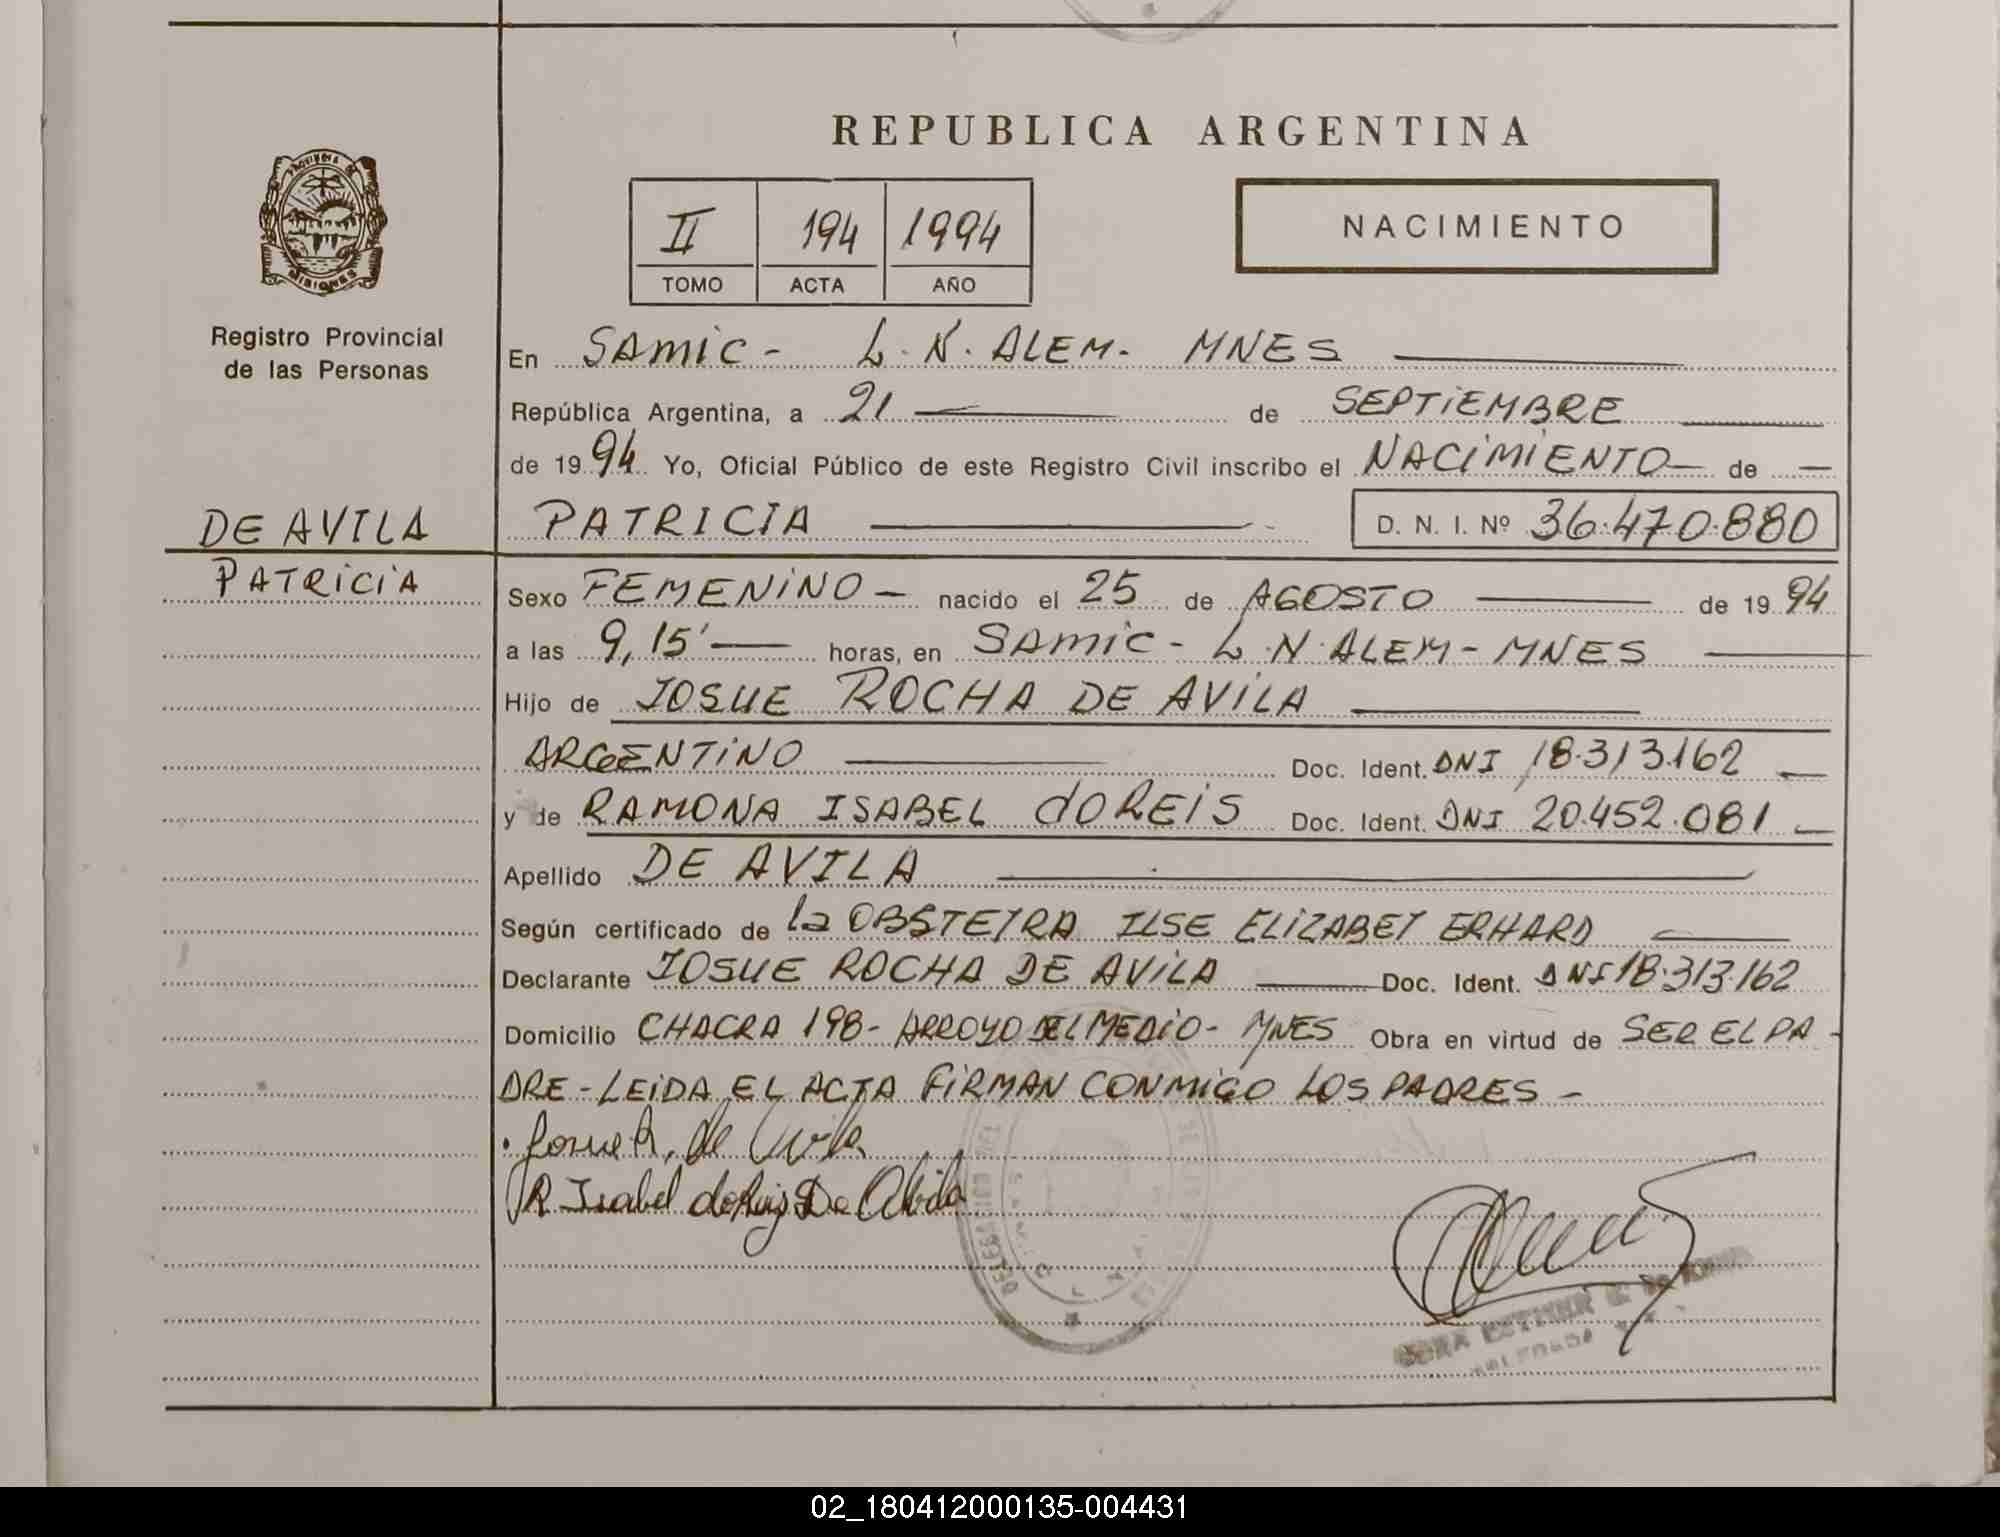 REPUBLICA ARGENTINA
II 194 1994
TOMO ACTA AÑO
NACIMIENTO
PROVINCIA DE
MISIONES
Registro Provincial
de las Personas
En SAMIC - L. N. ALEM - MNES
República Argentina, a 21 de SEPTIEMBRE
de 1994 Yo, Oficial Público de este Registro Civil inscribo el NACIMIENTO de
DE AVILA
PATRICIA
PATRICIA D. N. I. Nº 36.470.880
Sexo FEMENINO - nacido el 25 de AGOSTO de 1994
a las 9,15' horas, en SAMIC - L. N. ALEM - MNES
Hijo de JOSUE ROCHA DE AVILA
ARGENTINO Doc. Ident. DNI 18.313.162
y de RAMONA ISABEL dOREIS Doc. Ident. DNI 20.452.081
Apellido DE AVILA
Según certificado de la OBSTETRA ILSE ELIZABET ERHARD
Declarante JOSUE ROCHA DE AVILA Doc. Ident. DNI 18.313.162
Domicilio CHACRA 198 - ARROYO DEL MEDIO - MNES Obra en virtud de SER EL PA-
DRE - LEIDA EL ACTA FIRMAN CONMIGO LOS PADRES -
Josue R. de Avila
R Isabel doReis De Abila
DELEGACION DEL
02_180412000135-004431